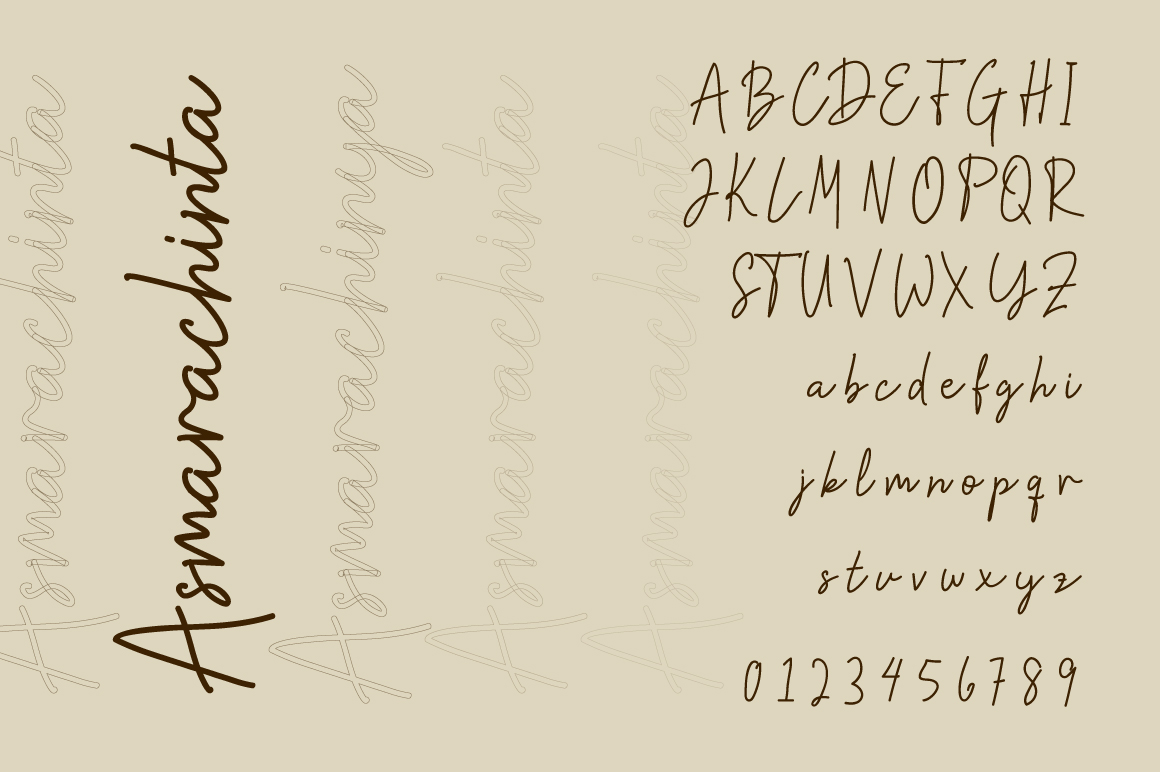 Asmarachinta
Asmarachinta
Asmarachinya
Asmarachinta
Asmarachinta
ABCDEFGHI
JKLMNOPQR
STUVWXYZ
abcdefghi
jklmnopqr
stuvwxyz
0123456789